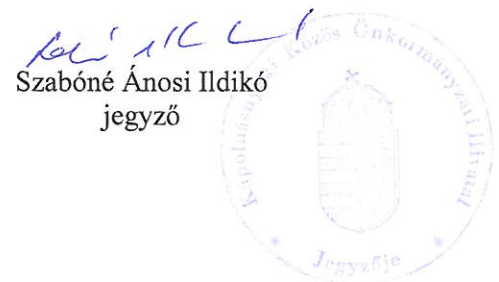 Szabóné Ánosi Ildikó
jegyző
Kápolnásnyéki Közös Önkormányzati Hivatal
* Jegyzője *